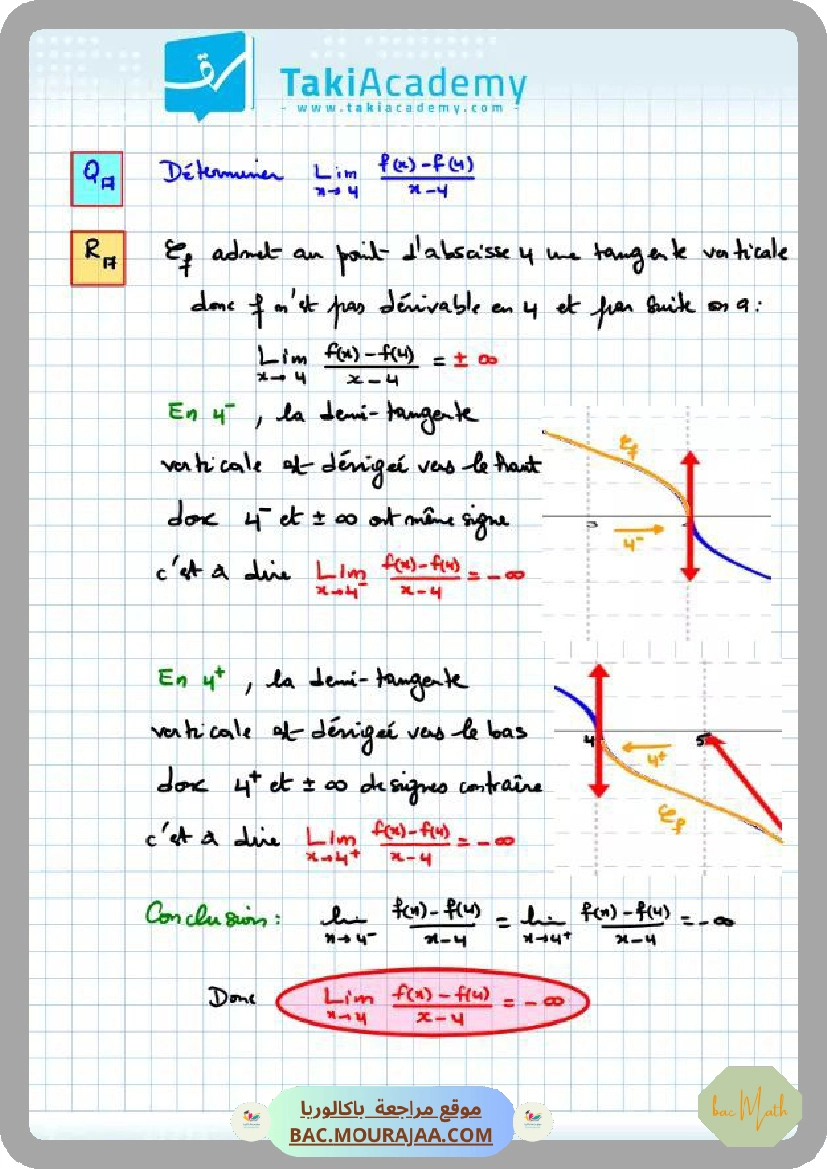 TakiAcademy
- www.takiacademy.com -
Q17 Déterminer Lim x→4 f(x)-f(4) / x-4
R17 𝒞f admet au point d'abscisse 4 une tangente verticale
donc f n'est pas dérivable en 4 et par suite on a :
Lim x→4 f(x)-f(4) / x-4 = ± ∞
En 4⁻, la demi-tangente
verticale est dérigeé vers le haut
𝒞f
donc 4⁻ et ± ∞ ont même signe
4⁻
c'est à dire Lim x→4⁻ f(x)-f(4) / x-4 = -∞
En 4⁺, la demi-tangente
verticale est dérigeé vers le bas
4 4⁺ 5
donc 4⁺ et ± ∞ de signes contraire
𝒞f
c'est à dire Lim x→4⁺ f(x)-f(4) / x-4 = -∞
Conclusion : lim x→4⁻ f(x)-f(4) / x-4 = lim x→4⁺ f(x)-f(4) / x-4 = -∞
Donc Lim x→4 f(x)-f(4) / x-4 = -∞
bac Math
موقع مراجعة باكالوريا
BAC.MOURAJAA.COM